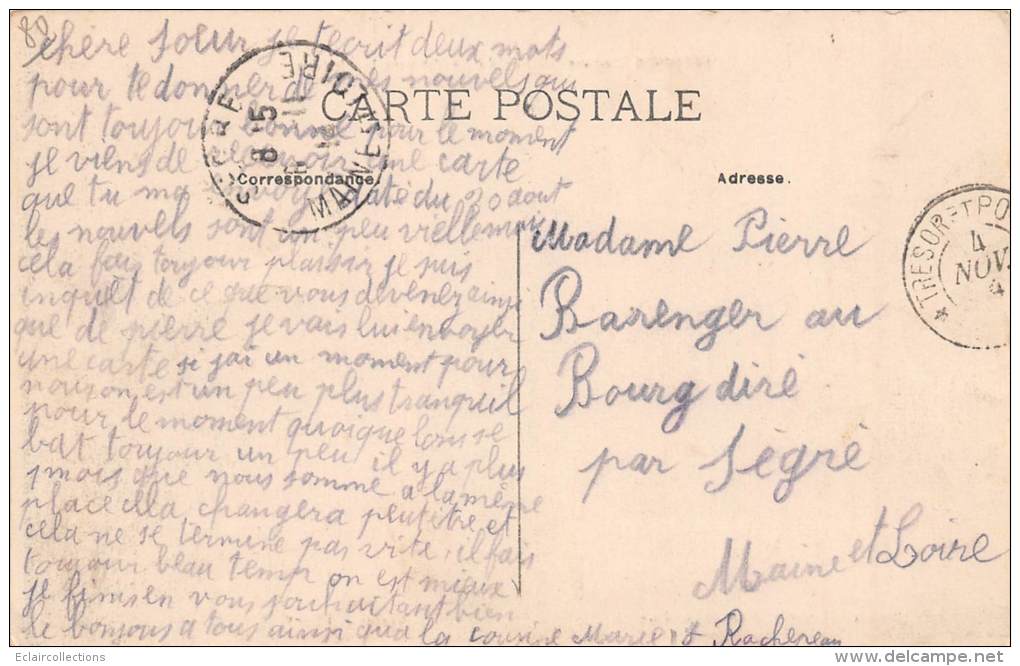 80
chère Soeur je tecrit deux mots
pour te donner de mes nouvels qui
sont toujour bonne pour le moment
je viens de recevoir une carte
que tu ma envoyé daté du 30 aout
les nouvels sont un peu vielle mai
cela fais toujour plaisir je suis
inquet de ce que vous devenez ainsi
que de pierre je vais lui envoyer
une carte si jai un moment pour
nous on est un peu plus tranquil
pour le moment quoique lon se
bat toujour un peu il y a plus
1 mois que nous somme a la même
place cella changera peutetre et
cela ne se termine pas vite il fais
toujour beau temp on est mieux
je finis en vous souhaitant bien
le bonjour a tous ainsi qua la cousine Marie
CARTE POSTALE
Correspondance.
Adresse.
Madame Pierre
Barenger au
Bourg diré
par Ségré
Maine et Loire
SEGRE
8 15
MAINE ET LOIRE
* TRESOR ET PO
4
NOV.
Eclaircollections